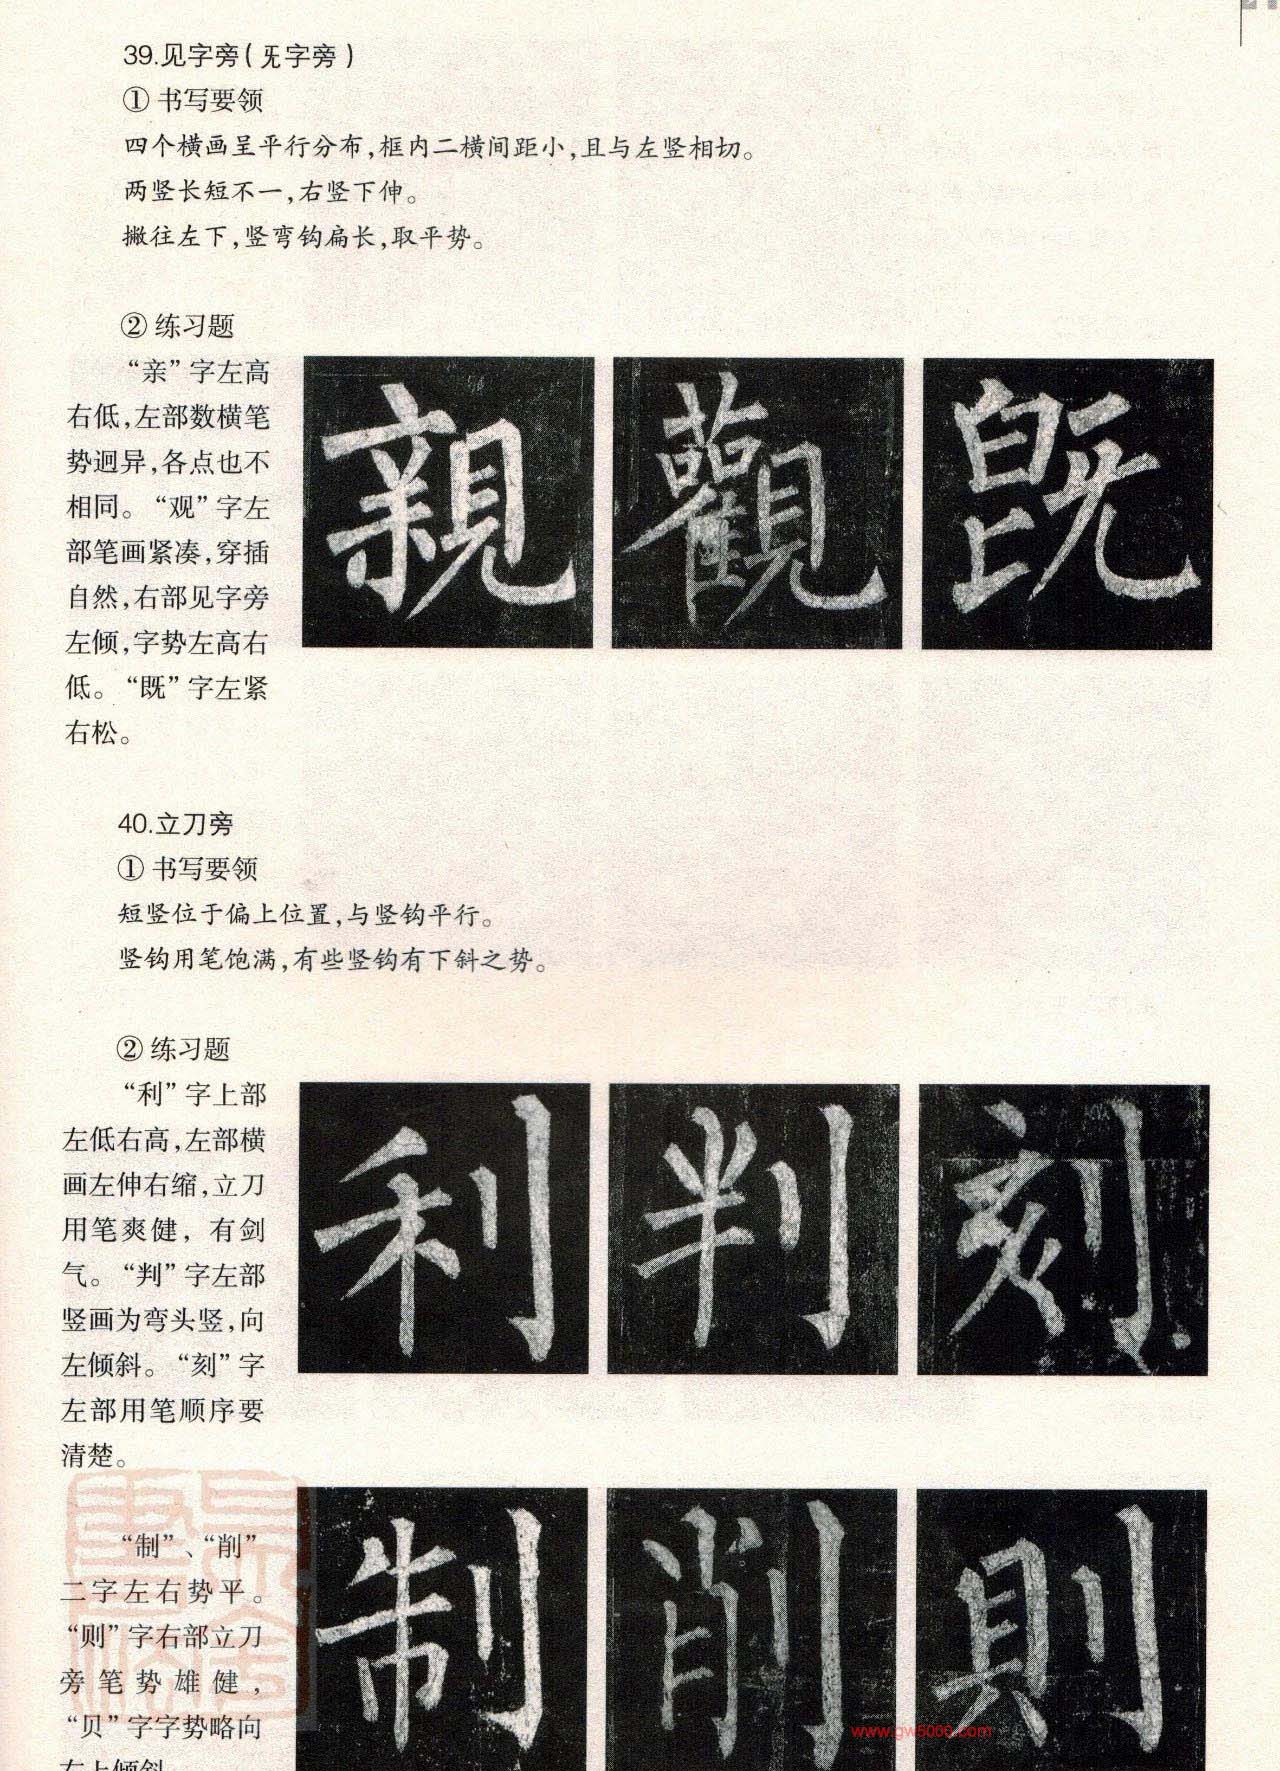 39.见字旁(旡字旁)
① 书写要领
四个横画呈平行分布,框内二横间距小,且与左竖相切。
两竖长短不一,右竖下伸。
撇往左下,竖弯钩扁长,取平势。
② 练习题
“亲”字左高
右低,左部数横笔
势迥异,各点也不
相同。“观”字左
部笔画紧凑,穿插
自然,右部见字旁
左倾,字势左高右
低。“既”字左紧
右松。
親 觀 既
40.立刀旁
① 书写要领
短竖位于偏上位置,与竖钩平行。
竖钩用笔饱满,有些竖钩有下斜之势。
② 练习题
“利”字上部
左低右高,左部横
画左伸右缩,立刀
用笔爽健,有剑
气。“判”字左部
竖画为弯头竖,向
左倾斜。“刻”字
左部用笔顺序要
清楚。
利 判 刻
“制”、“削”
二字左右势平。
“则”字右部立刀
旁笔势雄健,
“贝”字字势略向
右上倾斜
制 削 則
www.gw5000.com